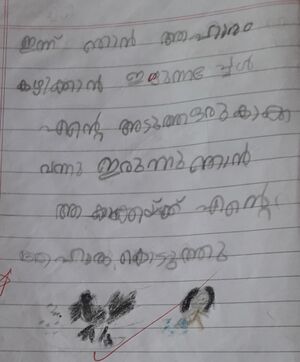 ഇന്ന് ഞാൻ ആഹാരം
കഴിക്കാൻ ഇരുന്നപ്പൾ
എന്റെ അടുത്ത ഒരു കാക്ക
വന്നു ഇരുന്നു ഞാൻ
ആ കാക്കയ്ക്ക് എന്റെ
ആഹാരം കൊടുത്തു